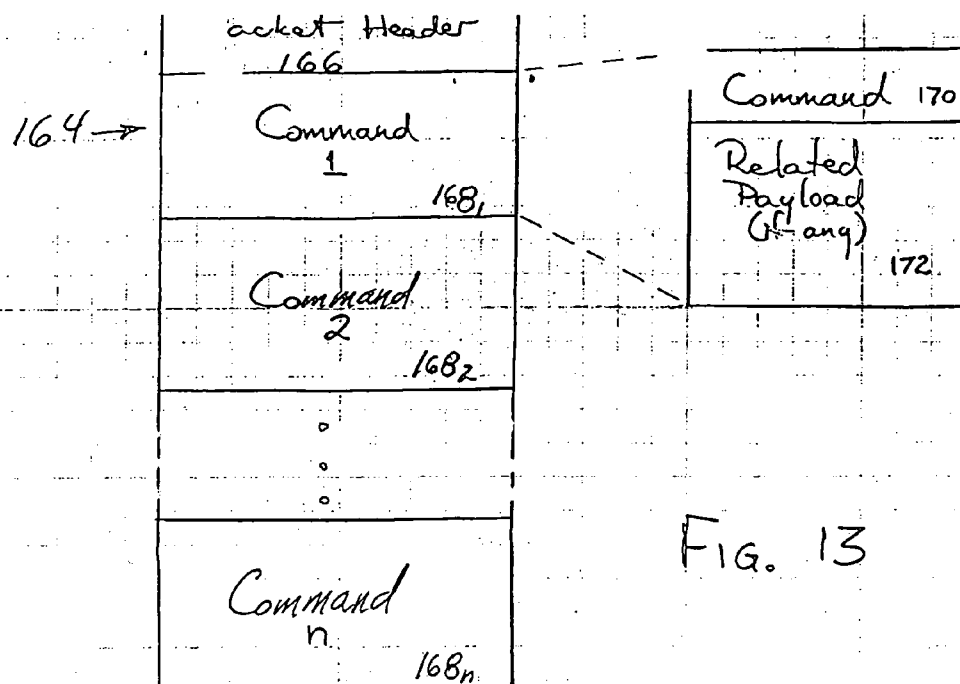 acket Header
166
164
Command
1
168₁
Command
2
168₂
Command
n
168ₙ
Command 170
Related
Payload
(if any)
172
FIG. 13